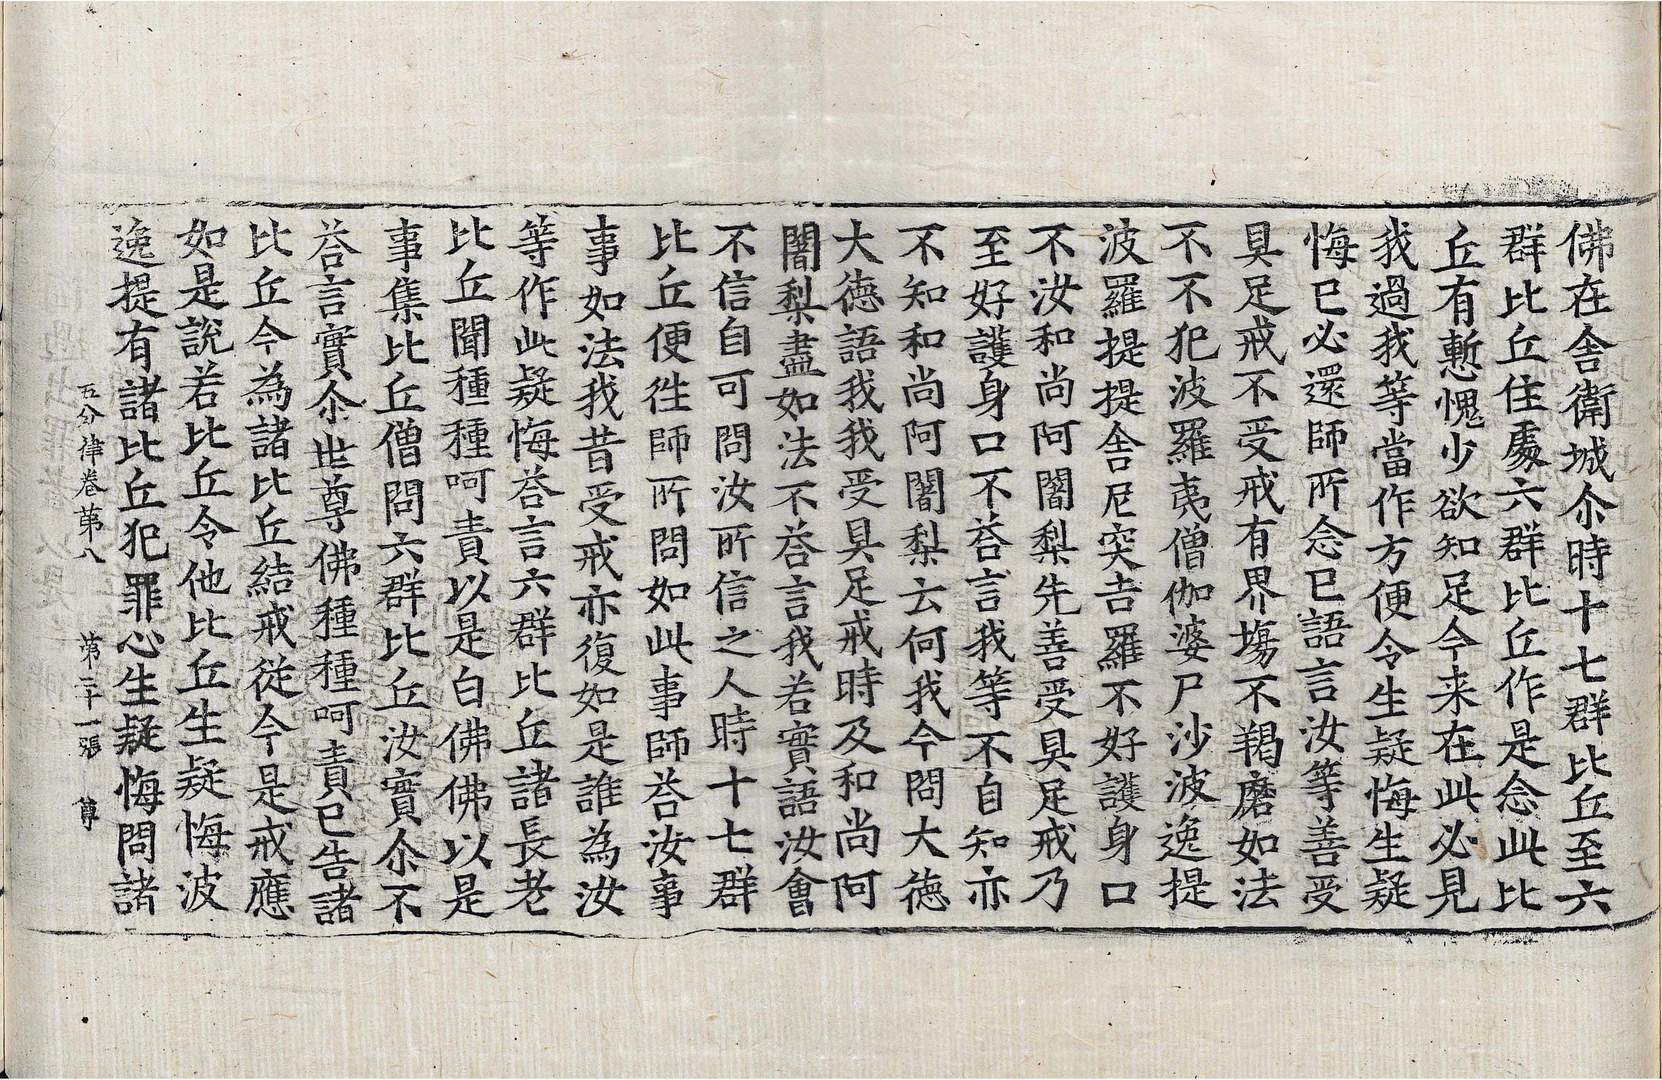 佛在舍衛城尒時十七群比丘至六
群比丘住處六群比丘作是念此比
丘有慙愧少欲知足今来在此必見
我過我等當作方便令生疑悔生疑
悔已必還師所念已語言汝等善受
具足戒不受戒有界塲不羯磨如法
不不犯波羅夷僧伽婆尸沙波逸提
波羅提提舍尼突吉羅不好護身口
不汝和尚阿闍梨先善受具足戒乃
至好護身口不荅言我等不自知亦
不知和尚阿闍梨云何我今問大德
大德語我我受具足戒時及和尚阿
闍梨盡如法不荅言我若實語汝會
不信自可問汝所信之人時十七群
比丘便徃師所問如此事師荅汝事
事如法我昔受戒亦復如是誰為汝
等作此疑悔荅言六群比丘諸長老
比丘聞種種呵責以是白佛佛以是
事集比丘僧問六群比丘汝實尒不
荅言實尒世尊佛種種呵責已告諸
比丘今為諸比丘結戒從今是戒應
如是說若比丘令他比丘生疑悔波
逸提有諸比丘犯罪心生疑悔問諸
五分律卷苐八 苐二十一張 尊